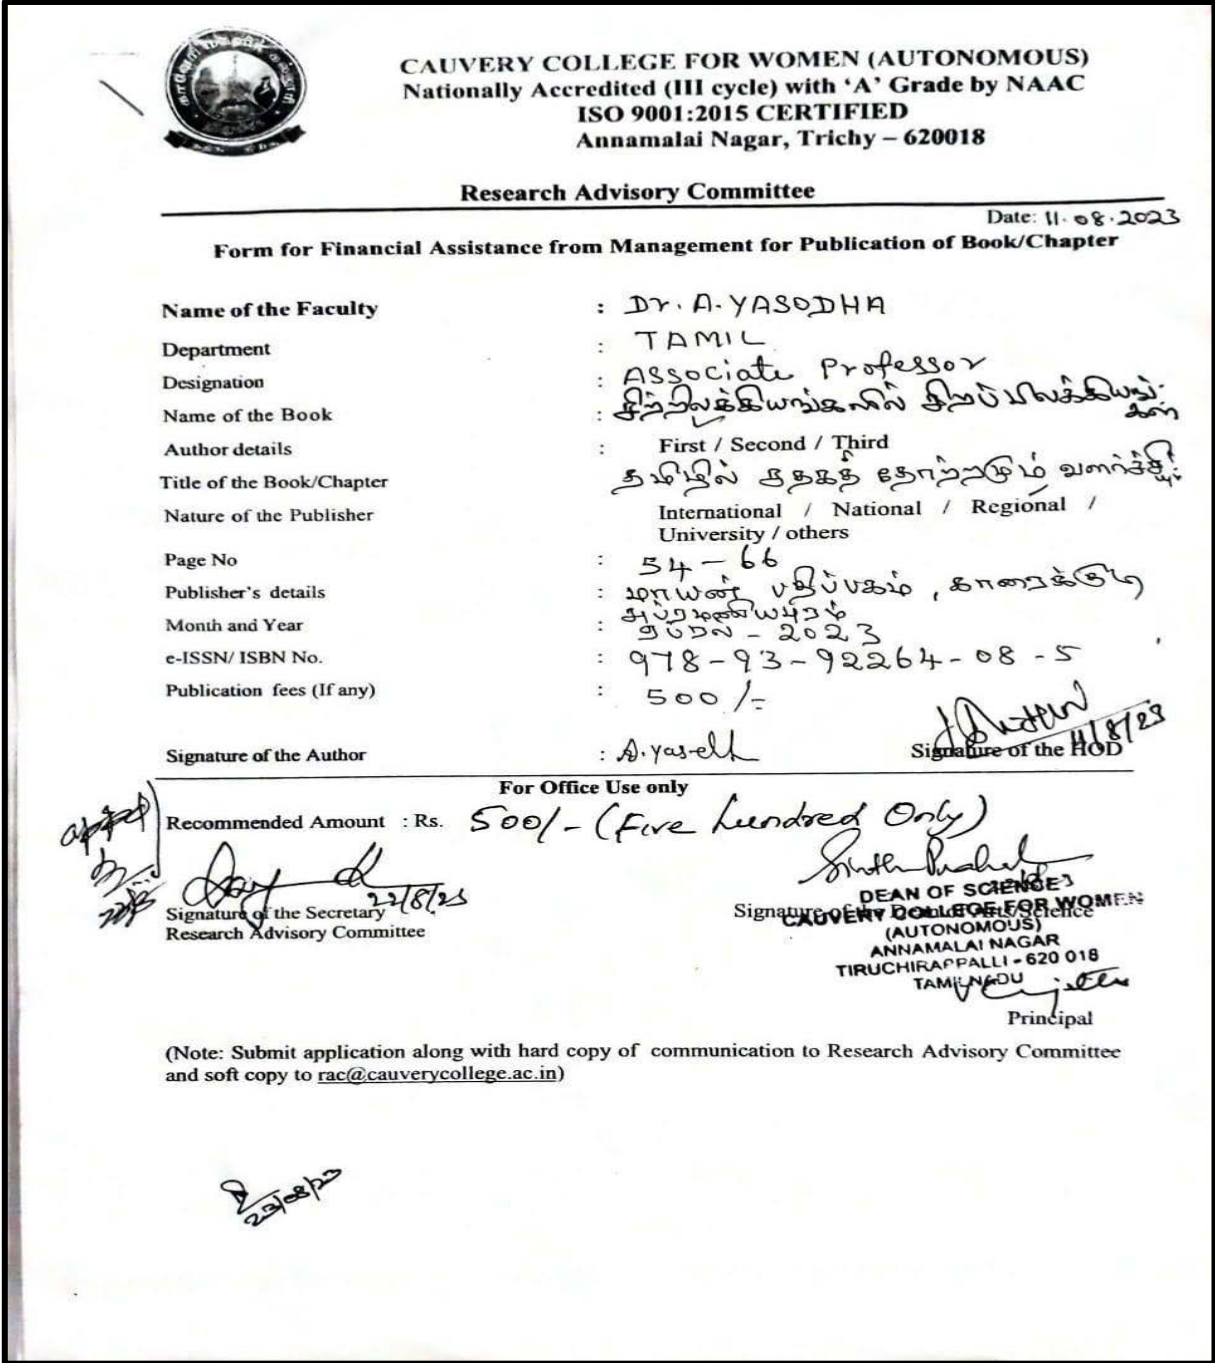 CAUVERY COLLEGE FOR WOMEN (AUTONOMOUS)
Nationally Accredited (III cycle) with ‘A’ Grade by NAAC
ISO 9001:2015 CERTIFIED
Annamalai Nagar, Trichy – 620018
Research Advisory Committee
Date: 11.08.2023
Form for Financial Assistance from Management for Publication of Book/Chapter
Name of the Faculty : Dr. A. YASODHA
Department : TAMIL
Designation : Associate Professor
Name of the Book : சிற்றிலக்கியங்களில் சிறப்பிலக்கியங்கள்
Author details : First / Second / Third
Title of the Book/Chapter தமிழில் தோற்றமும் வளர்ச்சியும்
Nature of the Publisher International / National / Regional /
University / others
Page No : 54 – 66
Publisher's details : மாயன் பதிப்பகம் , காரைக்குடி
சுப்ரமணியபுரம்
Month and Year : ஏப்ரல் - 2023
e-ISSN/ ISBN No. : 978-93-92264-08-5
Publication fees (If any) : 500/-
Signature of the Author : Signature of the HOD
11/8/23
For Office Use only
Recommended Amount : Rs. 500/- (Five hundred Only)
22/8/23
Signature of the Secretary
Research Advisory Committee
Signature of the Dean of Arts/Science
DEAN OF SCIENCE
CAUVERY COLLEGE FOR WOMEN
(AUTONOMOUS)
ANNAMALAI NAGAR
TIRUCHIRAPPALLI - 620 018
TAMILNADU
Principal
(Note: Submit application along with hard copy of communication to Research Advisory Committee
and soft copy to rac@cauverycollege.ac.in)
23/08/23